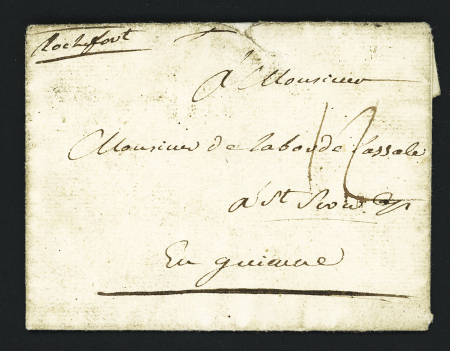 Rochefort
A Monsieur
Monsieur de Laborde Lassale
12
a St
En guienne